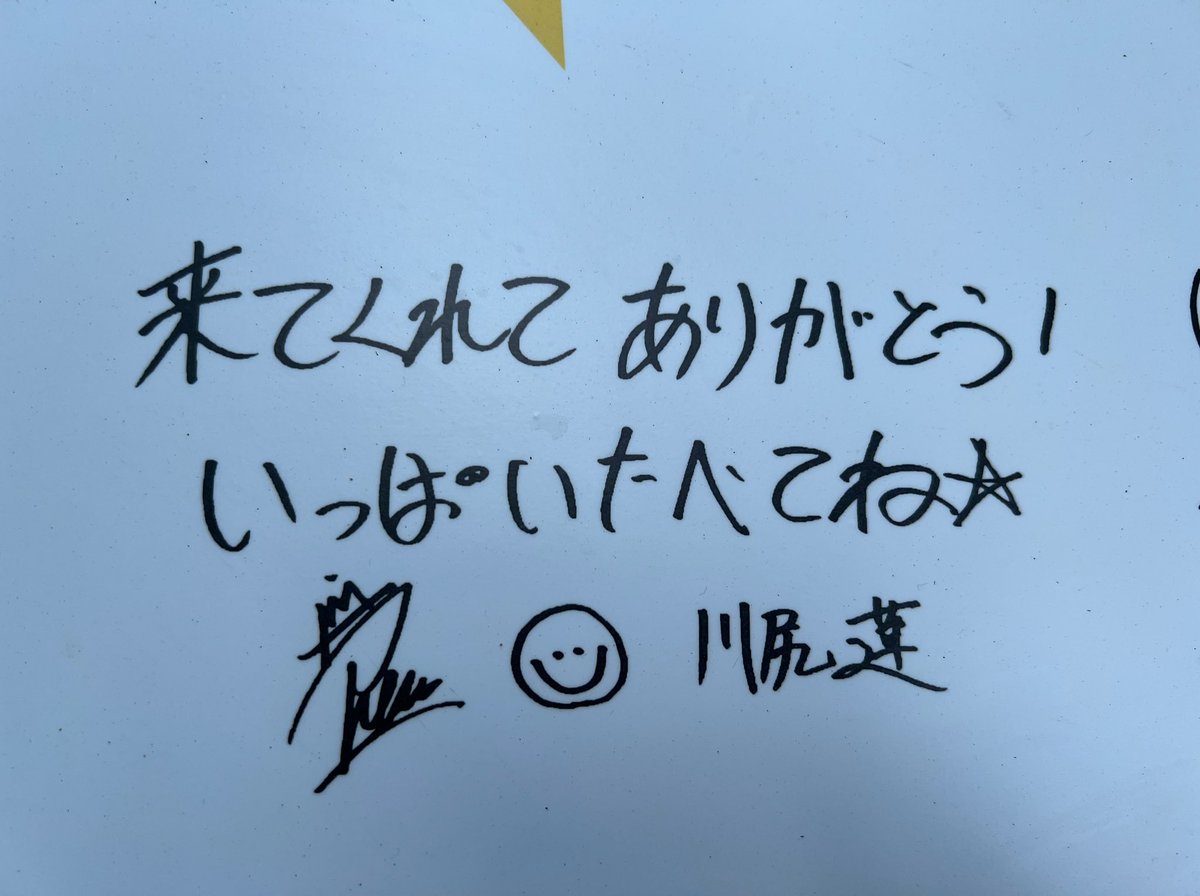 来てくれて ありがとう!
いっぱいたべてね☆
Ren 川尻蓮